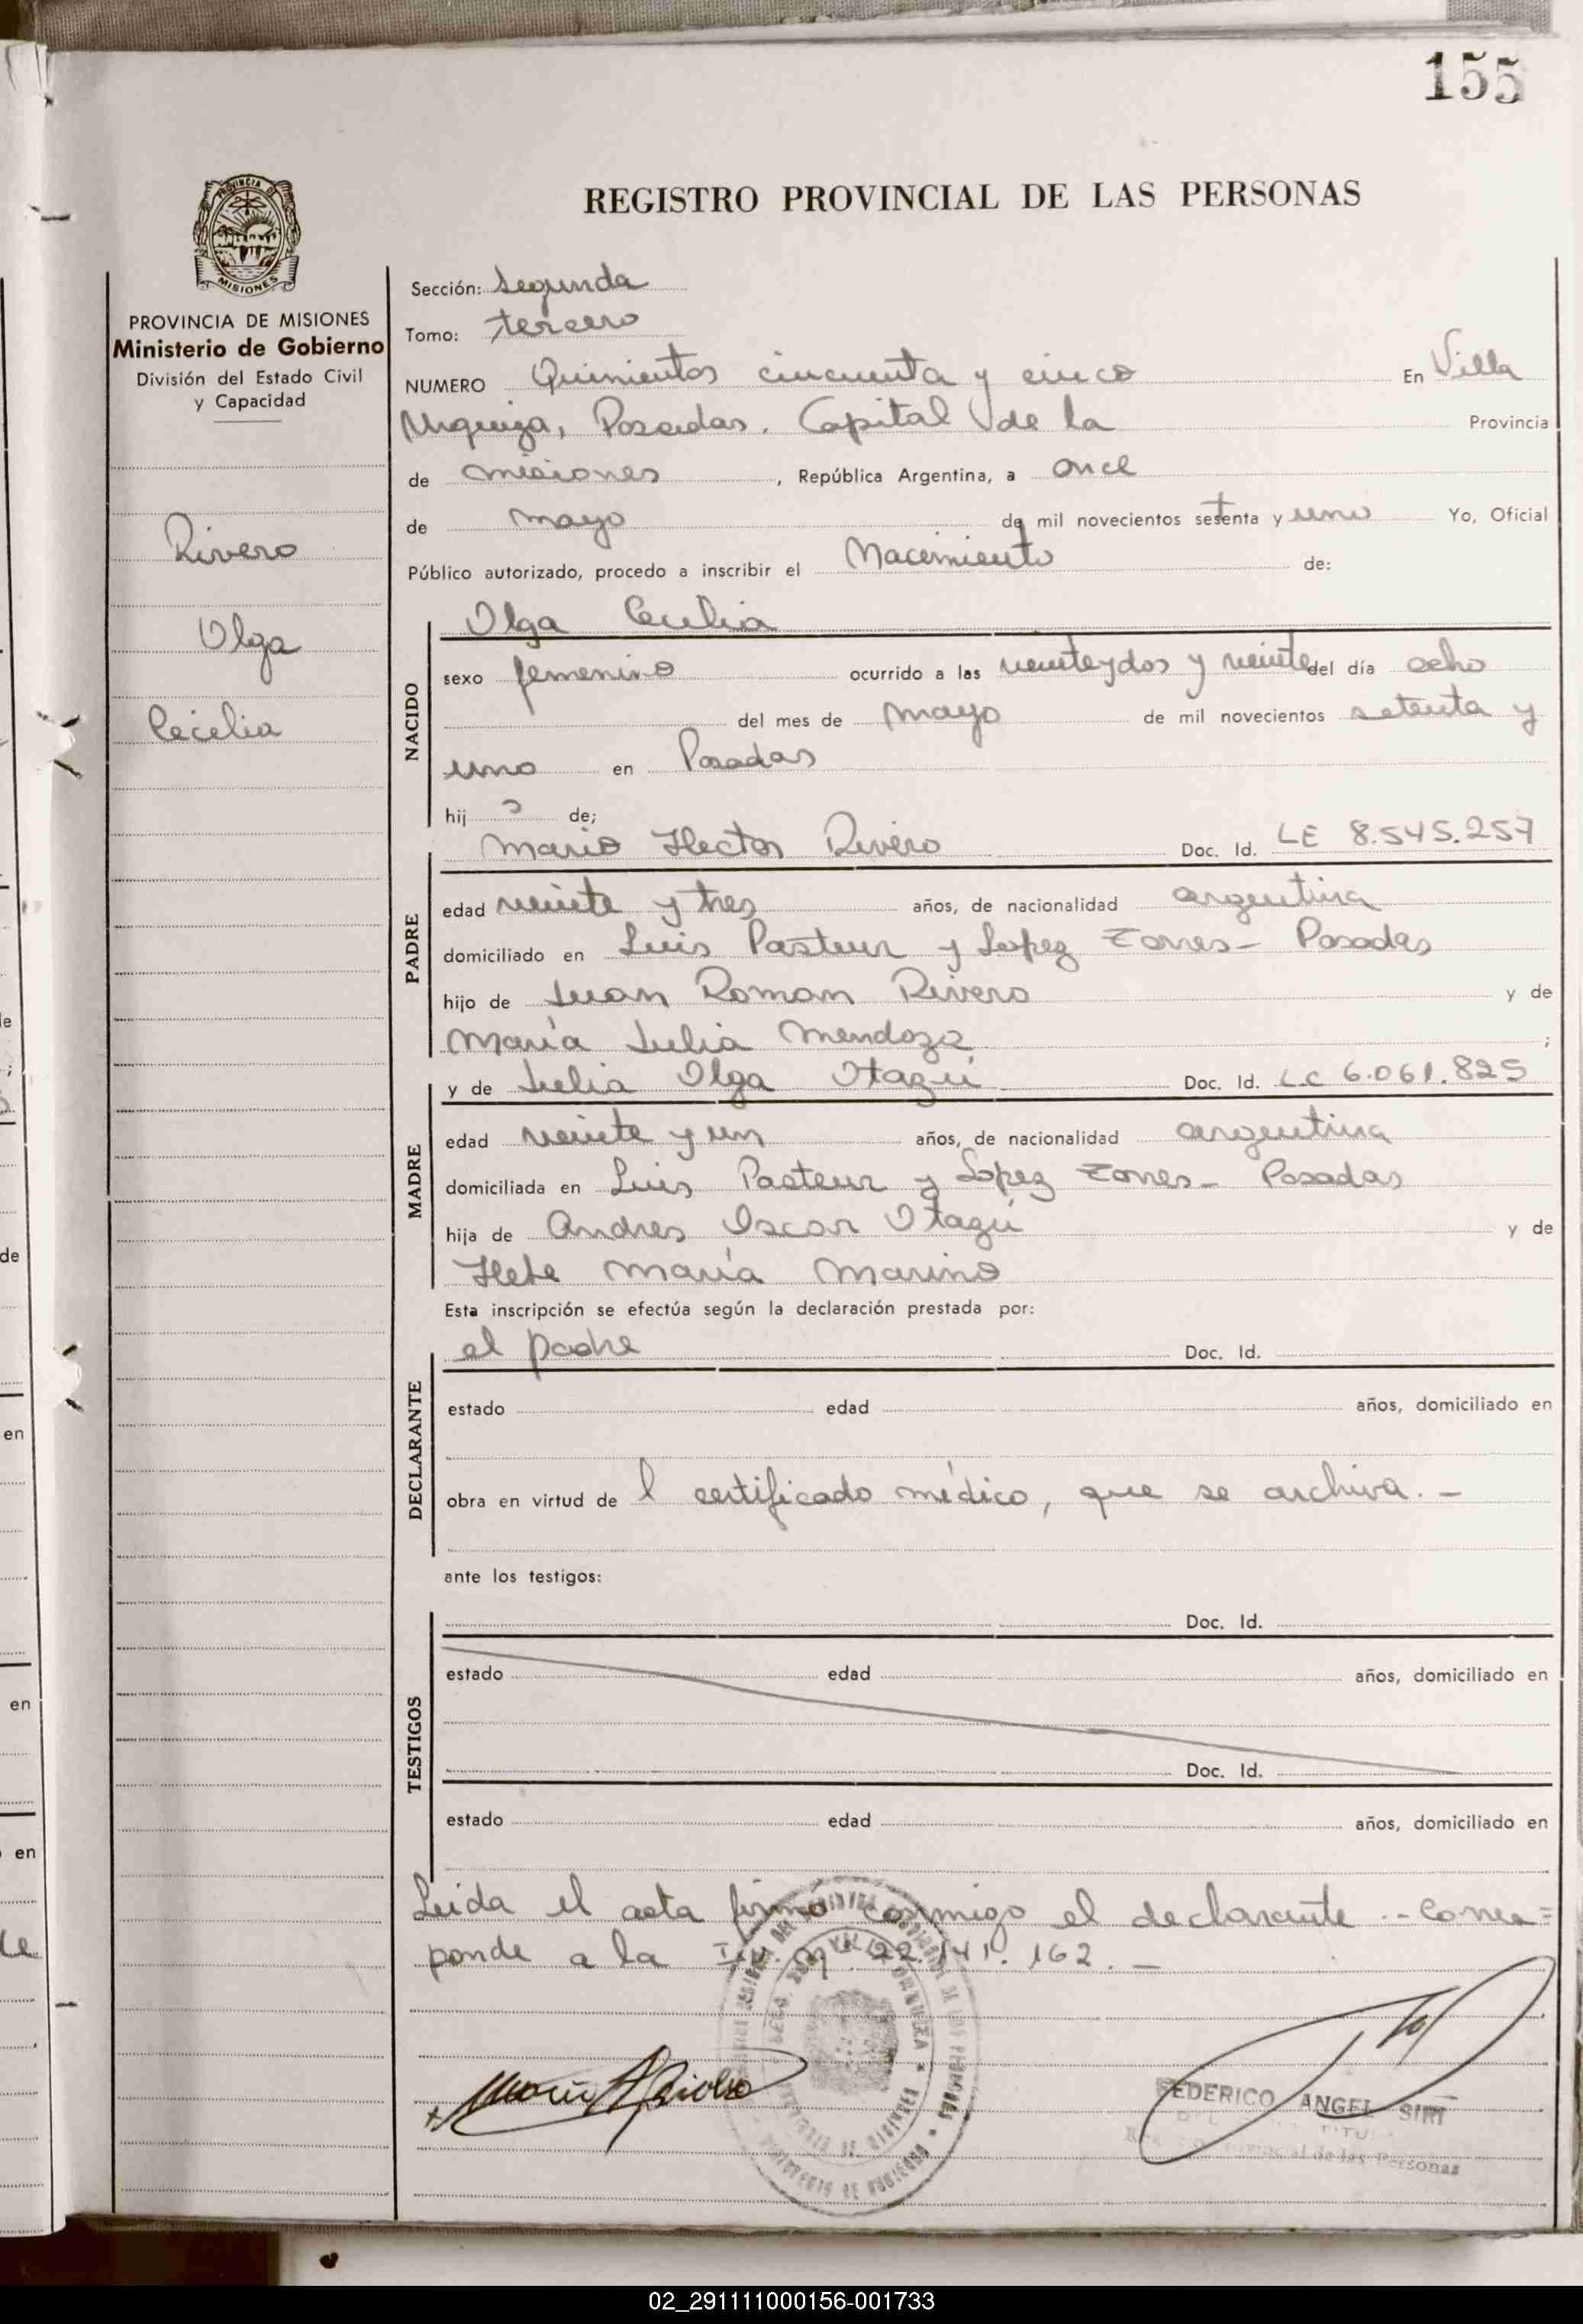 155
REGISTRO PROVINCIAL DE LAS PERSONAS
PROVINCIA DE
MISIONES
PROVINCIA DE MISIONES
Ministerio de Gobierno
División del Estado Civil
y Capacidad
Rivero
Olga
Cecilia
Sección: Segunda
Tomo: tercero
NUMERO Quinientos cincuenta y cinco En Villa
Urquiza, Posadas. Capital de la Provincia
de misiones, República Argentina, a once
de mayo de mil novecientos setenta y uno Yo, Oficial
Público autorizado, procedo a inscribir el Nacimiento de:
Olga Cecilia
NACIDO
sexo femenino ocurrido a las veinteydos y veinte del día ocho
del mes de mayo de mil novecientos setenta y
uno en Posadas
hij de;
Mario Hector Rivero Doc. Id. LE 8.545.257
PADRE
edad veinte y tres años, de nacionalidad argentina
domiciliado en Luis Pasteur y Lopez Torres - Posadas
hijo de Juan Roman Rivero y de
María Julia Mendoza ;
y de Julia Olga Otazú Doc. Id. LC 6.061.825
MADRE
edad veinte y un años, de nacionalidad argentina
domiciliada en Luis Pasteur y Lopez Torres - Posadas
hija de Andres Oscar Otazú y de
Hebe María Marino
Esta inscripción se efectúa según la declaración prestada por:
el padre Doc. Id.
DECLARANTE
estado edad años, domiciliado en
obra en virtud de l certificado médico, que se archiva. -
ante los testigos:
Doc. Id.
TESTIGOS
estado edad años, domiciliado en
Doc. Id.
estado edad años, domiciliado en
Leida el acta firmó conmigo el declarante .- Corres=
ponde a la Nº 22.141.162. -
FEDERICO ANGEL SIRI
Provincial de las Personas
02_291111000156-001733